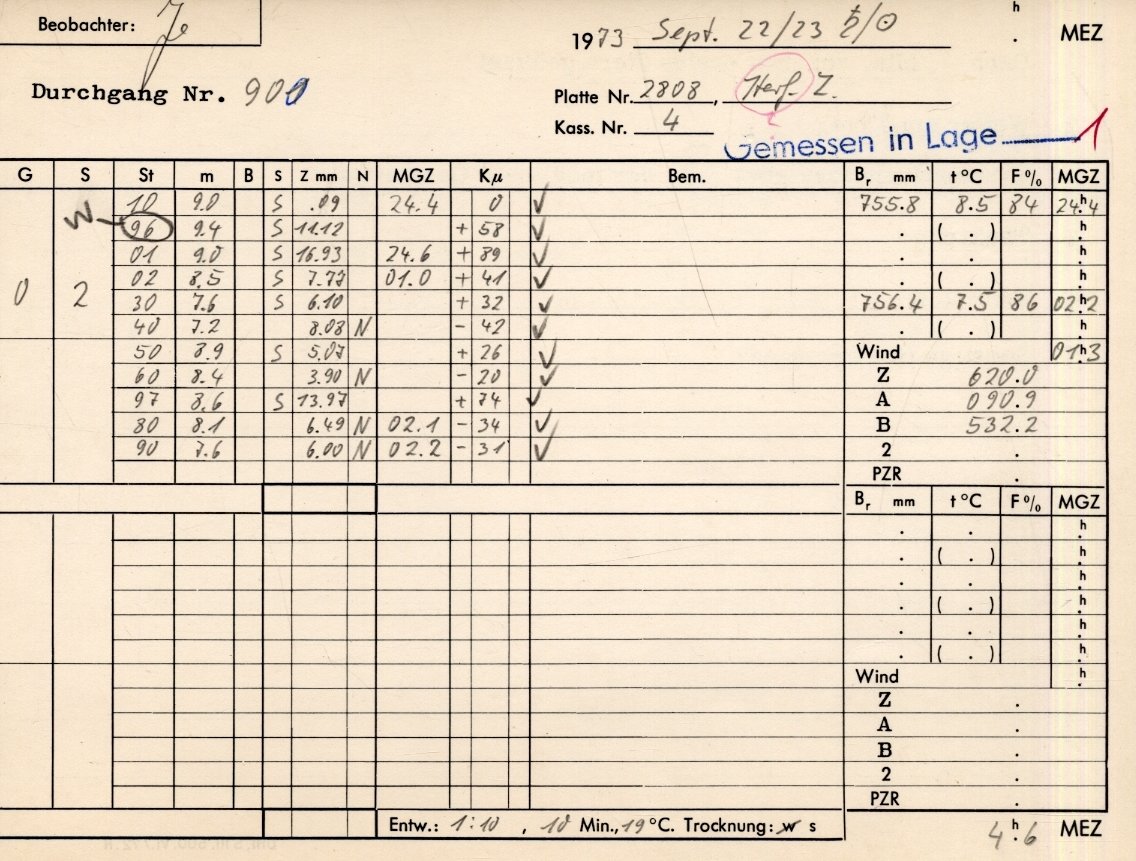 Beobachter: Je
h
1973 Sept. 22/23 ♄/☉ . MEZ
Durchgang Nr. 900
Platte Nr. 2808, Herf. Z.
Kass. Nr. 4
Gemessen in Lage 1
G S St m B S Z mm N MGZ Kμ Bem. Br mm t °C F % MGZ
10 9.0 S .09 24.4 0 ✓ 755.8 8.5 84 24.h4
W 96 9.4 S 11.12 + 58 ✓ . ( . ) .h
01 9.0 S 16.93 24.6 + 89 ✓ . . .h
0 2 02 8.5 S 7.77 01.0 + 41 ✓ . ( . ) .h
30 7.6 S 6.10 + 32 ✓ 756.4 7.5 86 02.h2
40 7.2 8.08 N - 42 ✓ . ( . ) .h
50 8.9 S 5.07 + 26 ✓ Wind 01.h3
60 8.4 3.90 N - 20 ✓ Z 620.0
97 8.6 S 13.97 + 74 ✓ A 090.9
80 8.1 6.49 N 02.1 - 34 ✓ B 532.2
90 7.6 6.00 N 02.2 - 31 ✓ 2 .
PZR
Br mm t °C F % MGZ
. . .h
. ( . ) .h
. . .h
. ( . ) .h
. . .h
. ( . ) .h
Wind .h
Z .
A .
B .
2 .
PZR .
Entw.: 1:10 , 10 Min., 19 °C. Trocknung: w s
4.h6 MEZ